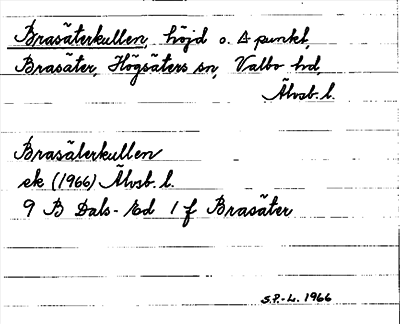 Brasäterkullen, höjd o. Δ punkt,
Brasäter, Högsäters sn, Valbo hd,
Älvsb. l.
Brasäterkullen
ek (1966) Älvsb. l.
9 B Dals-Ed 1 f Brasäter
S.P.-L. 1966